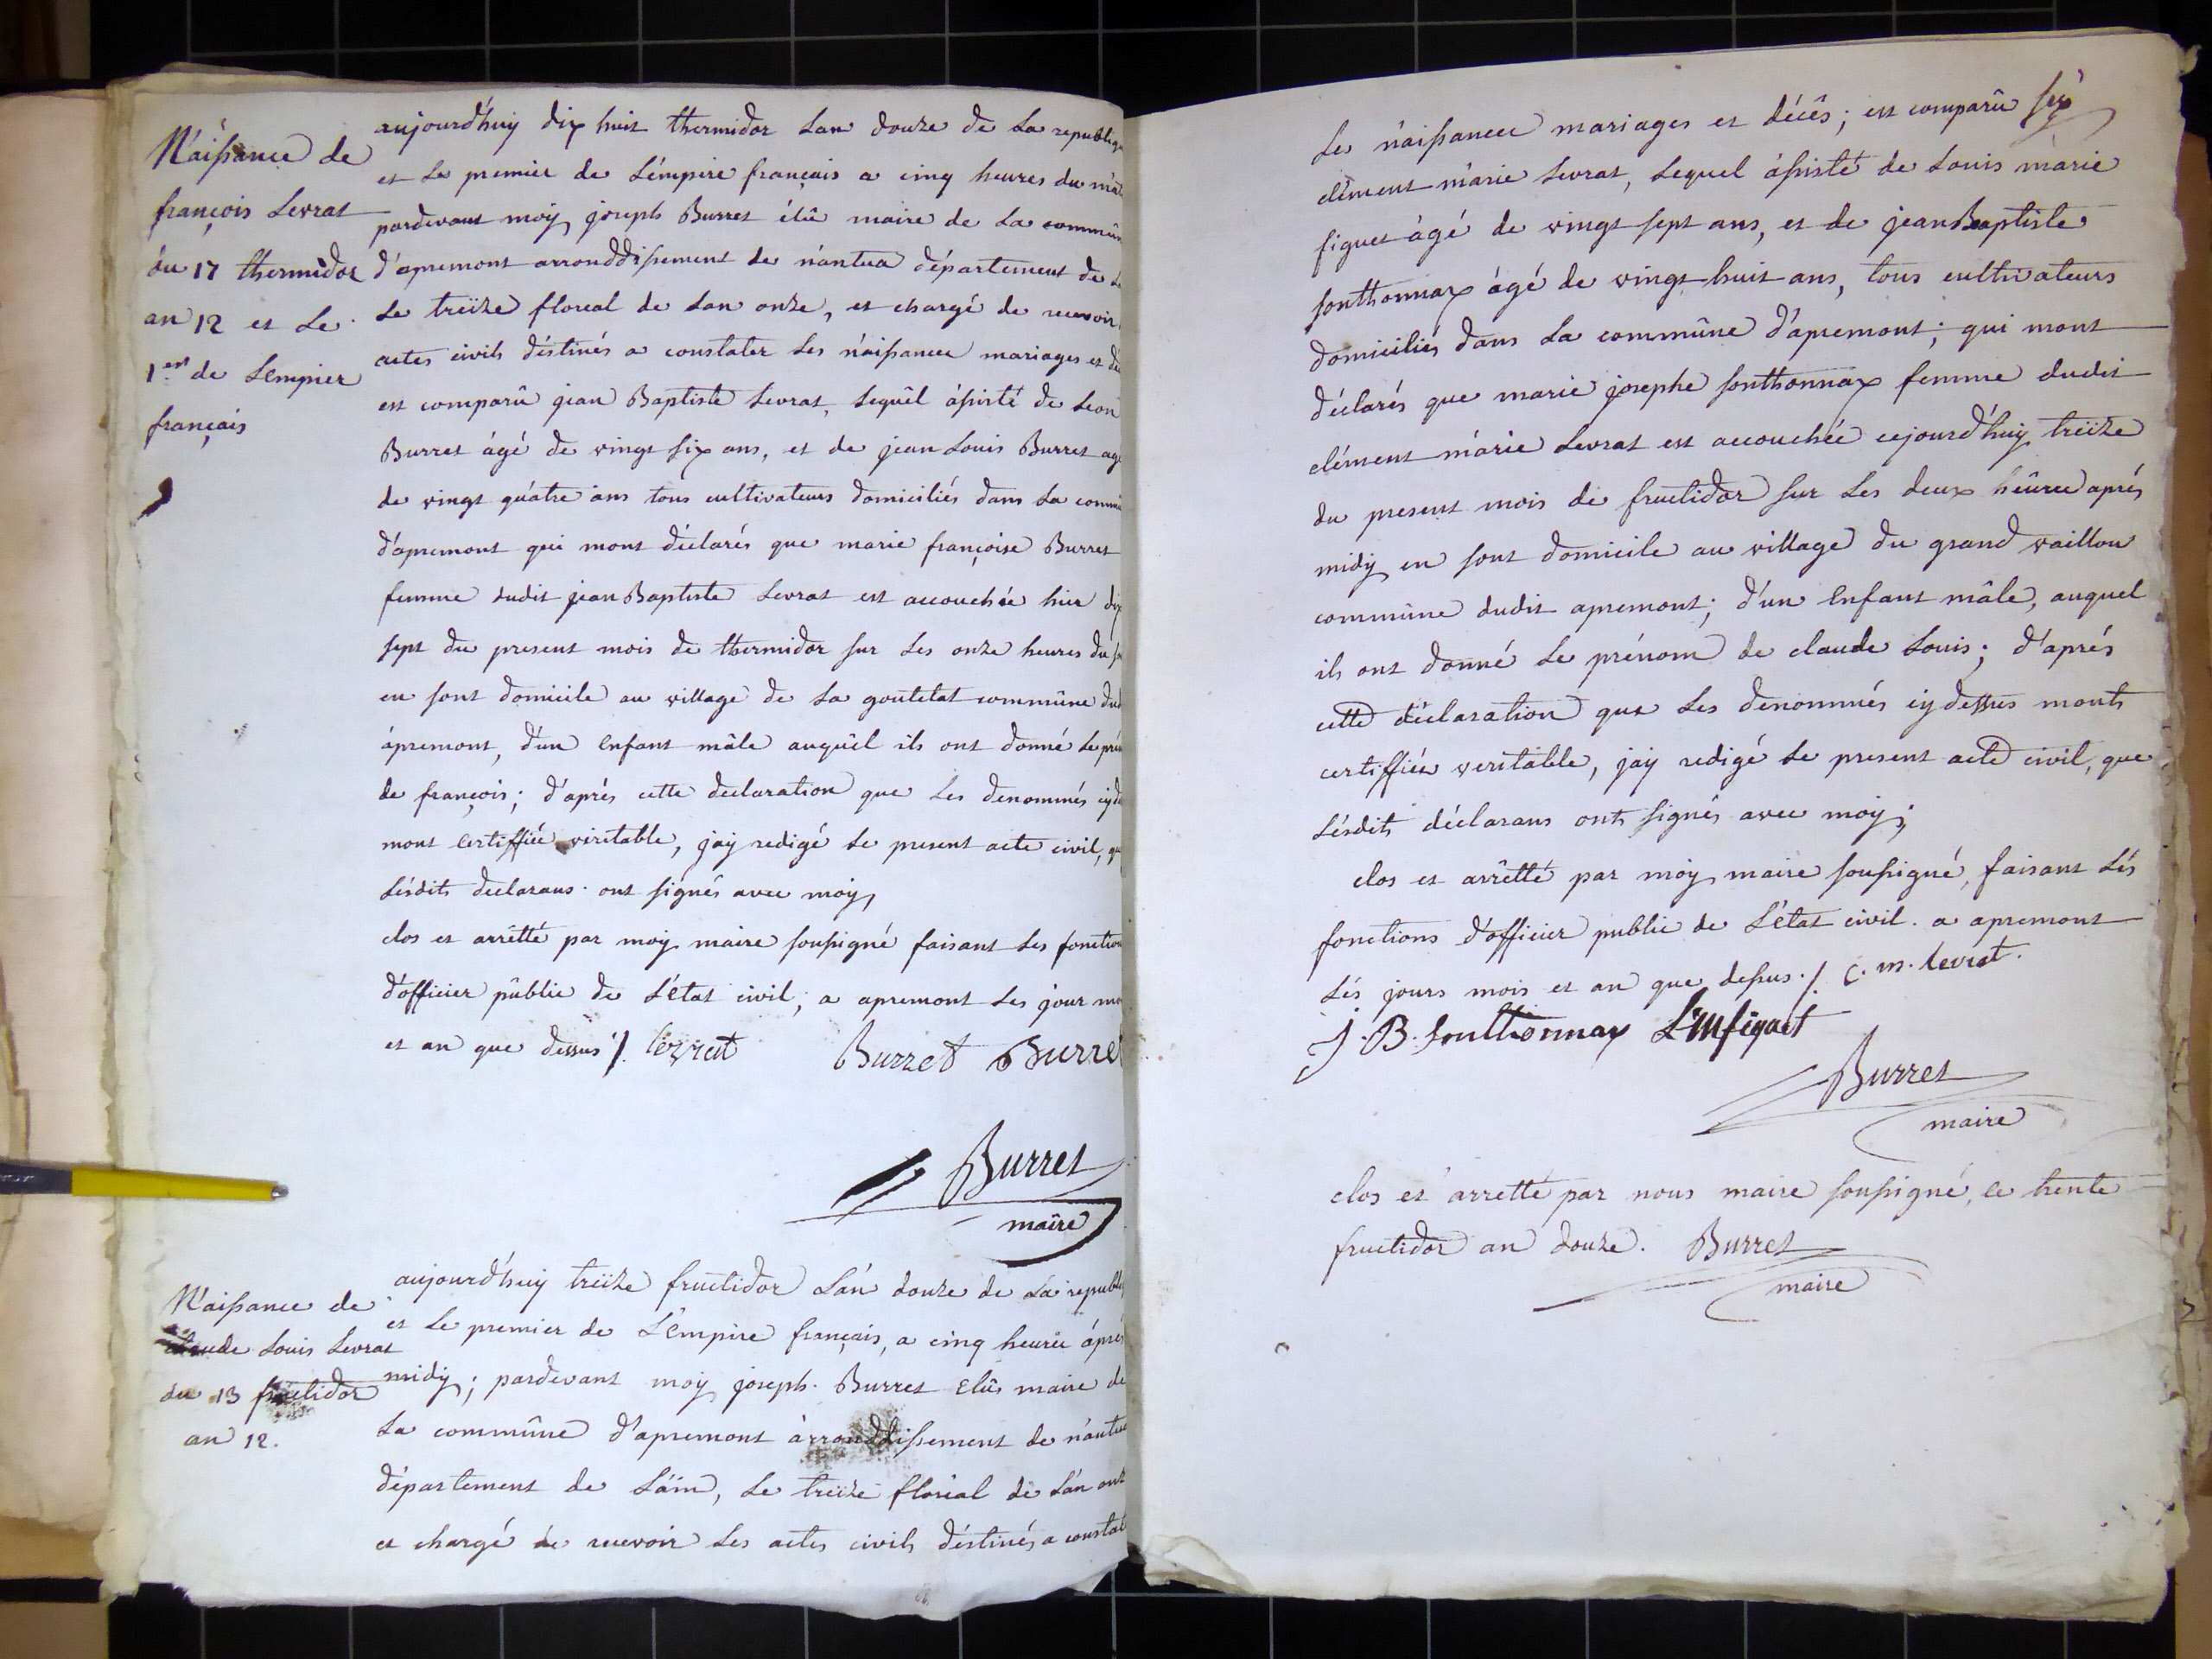 Naissance de
françois Levrat
du 17 thermidor
an 12 et Le
1er de Lempier
français
aujourd'huy dix huit thermidor Lan douze de La republiq
et Le premier de Lémpire français a cinq heures du mat
pardevant moy joseph Burret élû maire de La commûn
d'apremont arronddissement de nantua département de L
Le treïze floreal de Lan onze, et chargé de recevoir
actes civils déstinés a constater Les naissances mariages et dé
est comparû jean Baptiste Levrat, Lequêl assisté de Leon
Burret âgé de vingt six ans, et de jean Louis Burret agé
de vingt quatre ans tous cultivateurs domiciliés dans La commû
d'apremont qui mont déclarés que marie françoise Burret
femme dudit jean Baptiste Levrat est accouchée hier dix
sept du present mois de thermidor sur Les onze heures du
en sont domicile au village de La goutelat commûne dud
apremont, d'un Enfant mâle auquêl ils ont donné Le prén
de françois; d'aprés cette declaration que Les denommés cyde
mont certiffiée veritable, jaÿ redigé Le present acte civil, qu
Lésdits declarans ont signés avec moy
clos et arrêtté par moy maire soussigné faisant Les fonction
d'officier pûblic de L'état civil; a apremont Les jour mo
et an que dessus /. Levrat Burret Burret
Burret
maire
Naissance de
claude Louis Levrat
du 13 fructidor
an 12.
aujourd'huy treïze fructidor Lán douze de Lá republi
et Le premier de L'Empire français, a cinq heures áprés
midy; pardevant moy joseph Burret Elûs maire de
La commûne d'apremont àrronddissement de nántua
département de Láin, Le treïze floréal de Lán onz
et chargé de recevoir Les actes civils déstinés a constat
Les naissances mariages et décês; est comparû
clément marie Levrat, Lequel assisté de Louis marie
figuet âgé de vingt sept ans, et de jean Baptiste
sonthonnax âgé de vingt huit ans, tous cultivateurs
domiciliés dans La commûne d'apremont; qui mont
déclarés que marie josephe sonthonnax femme dudit
clément marie Levrat est accouchée cejourd'huy treïze
du present mois de fructidor sur Les deux hêures aprés
midy en sont domicile au village du grand vaillon
commûne dudit apremont; d'un Enfant mâle, auquel
ils ont donné Le prénom de claude Louis; d'aprés
cette déclaration que Les denommés cy dessus monts
certiffiée veritable, jaÿ redigé Le present acte civil, que
Lésdits déclarans onts signés avec moy;
clos et arrêtté par moy maire soussigné, faisant Lés
fonctions d'officier public de L'état civil. a apremont
Lés jours mois et an que dessus /. C. m. Levrat.
J. B. Sonthonnax L m figuet
Burret
maire
clos et arretté par nous maire soussigné, ce trente
fructidor an douze. Burret
maire